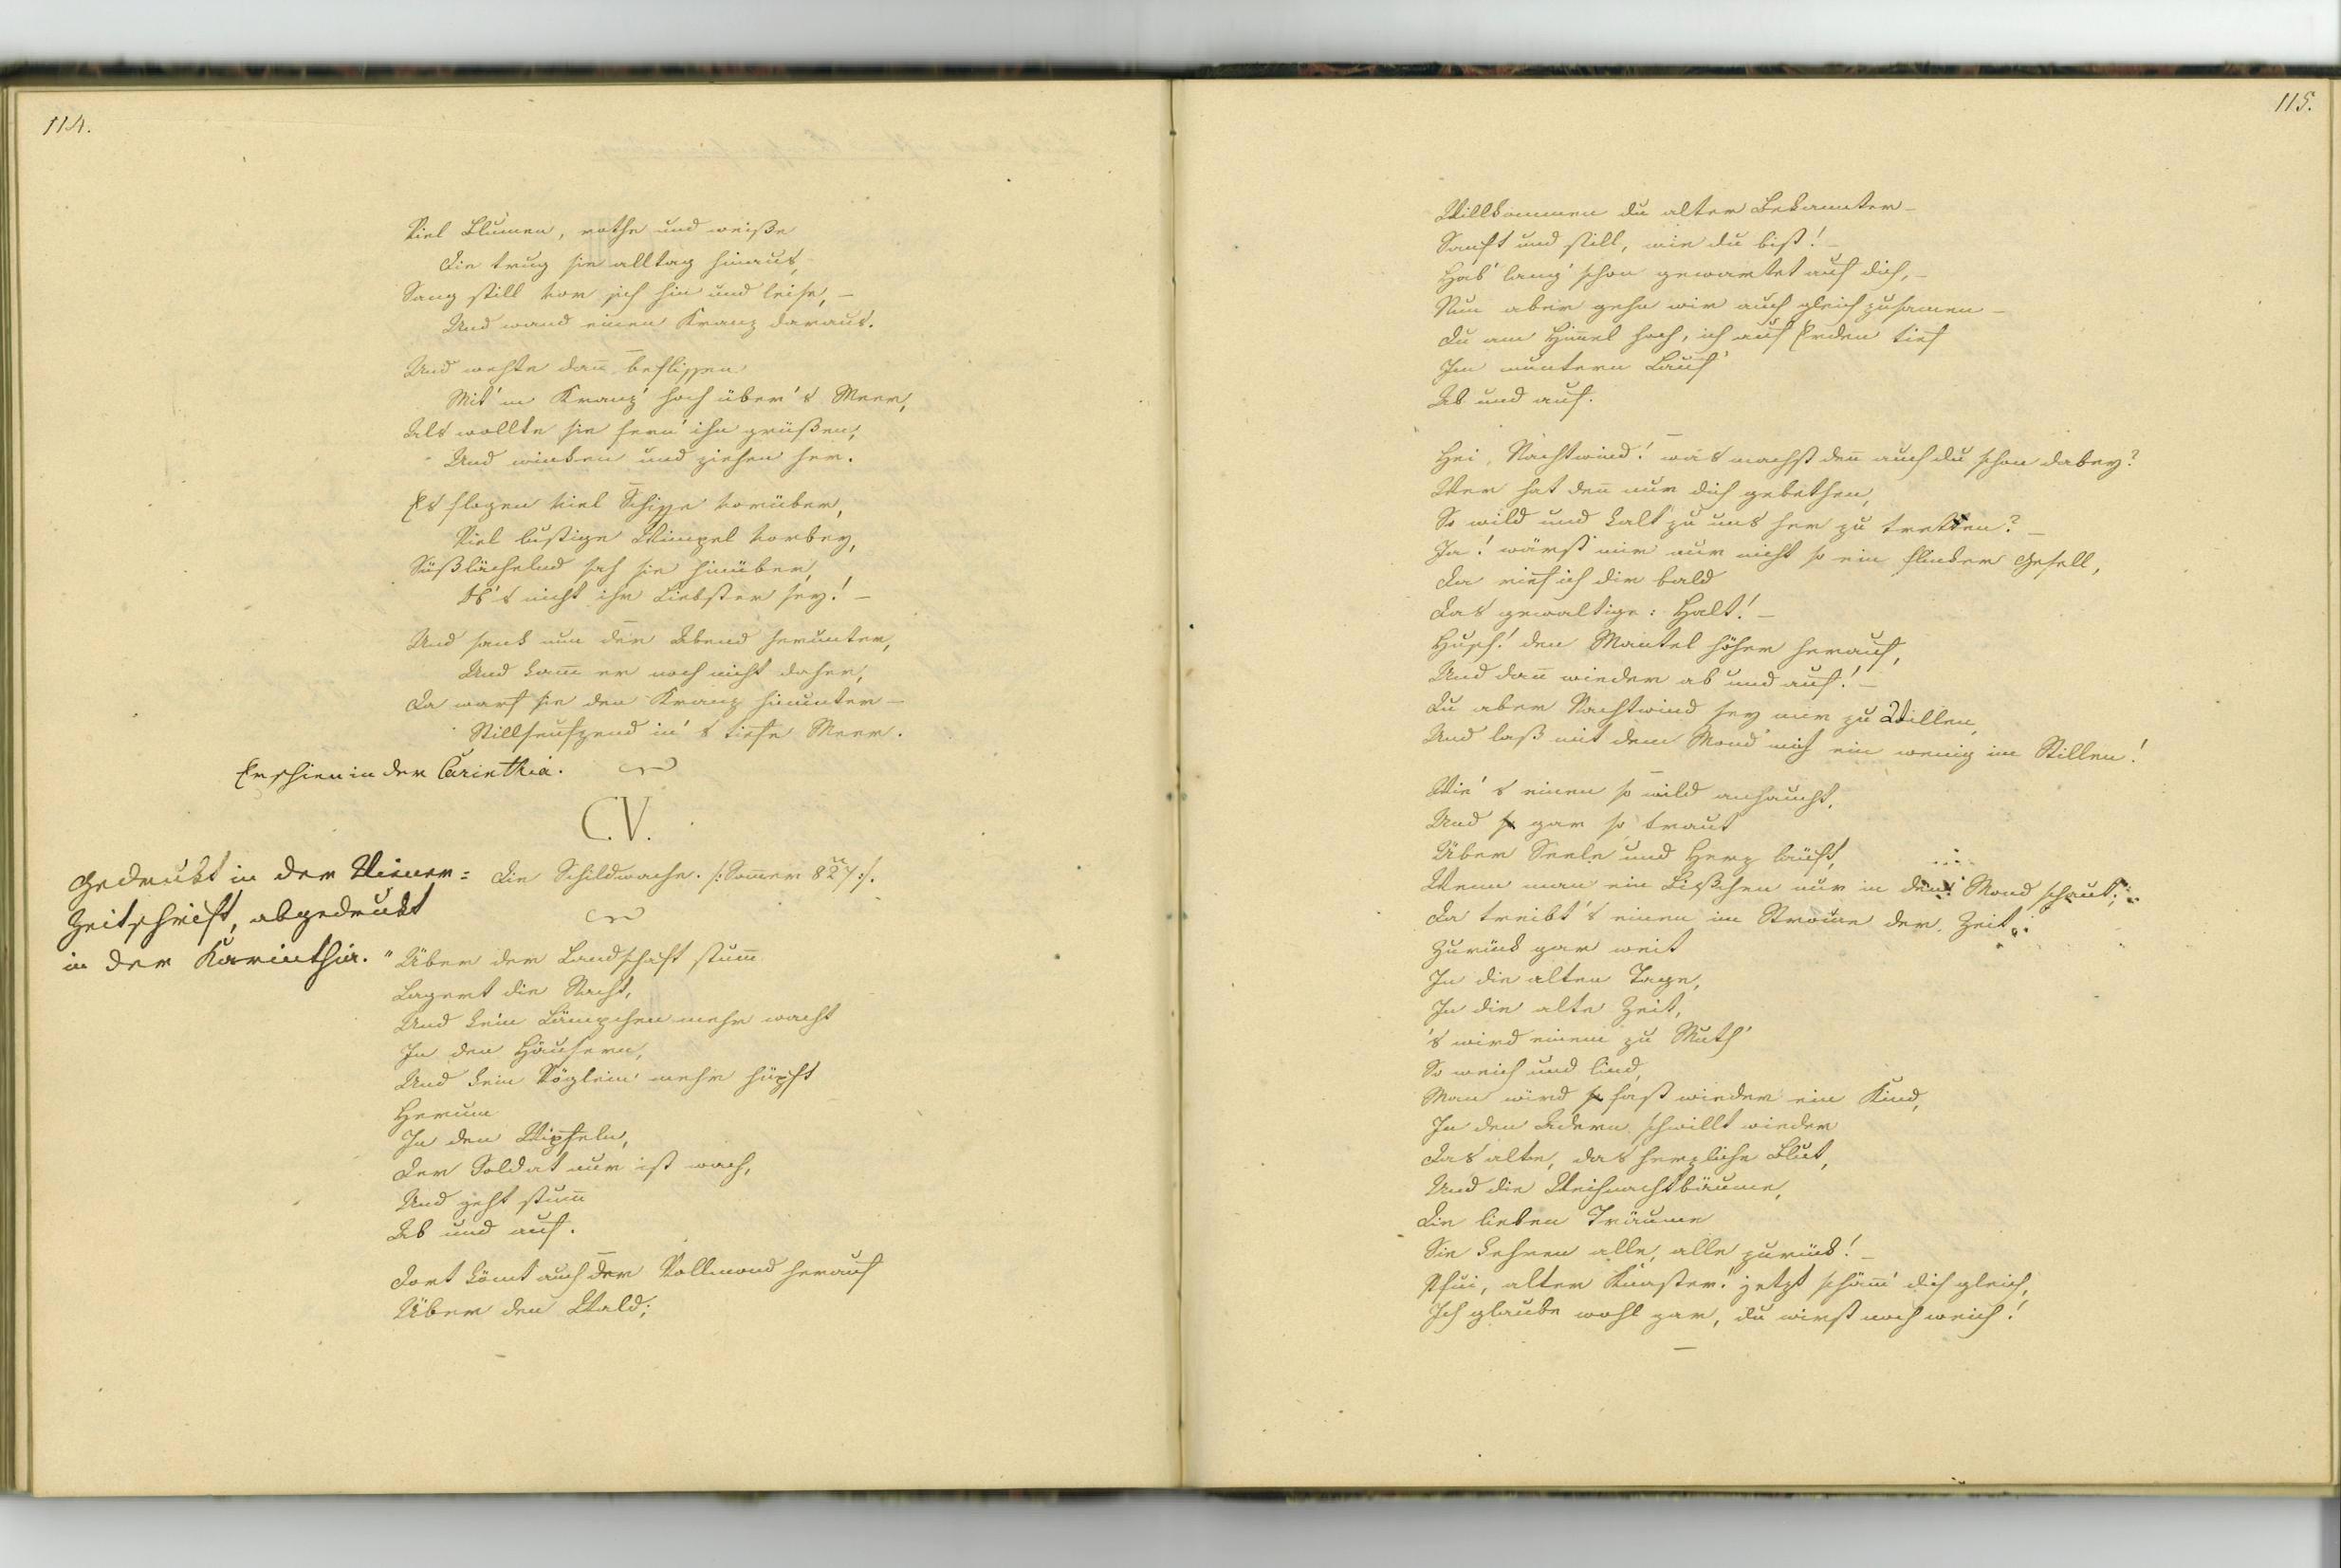 114.
Viel Blumen, rothe und weiße
Die trug sie alltag hinaus,
Sang still vor sich hin und leise, –
Und wand einen Kranz daraus.
Und wehte dan̄ beflissen
Mit'm Kranz' hoch über's Meer,
Als wollte sie fern' ihn grüßen,
Und winken und ziehen her.
Es flogen viel Schiffe vorüber,
Viel lustige Wimpel vorbey,
Süßlächelnd sah sie hinüber,
Ob's nicht ihr Liebster sey! –
Und sank nun der Abend herunter,
Und kam̄ er noch nicht daher,
Da warf sie den Kranz hinunter –
Stillseufzend in's tiefe Meer.
Erschien in der Carinthia.
CV.
Gedrukt in der Wiener=
Zeitschrift, abgedrukt
in der Karinthia.
Die Schildwache. /: Som̄er 827 :/.
"Über der Landschaft stum̄
Lagert die Nacht,
Und kein Lämpchen mehr wacht
In den Häusern,
Und kein Vöglein mehr hüpft
Herum
In den Wipfeln,
Der Soldat nur ist wach,
Und geht stum̄
Ab und auf.
Dort köm̄t auch der Vollmond herauf
Über den Wald;
115.
Willkommen du alter Bekannter –
Sanft und still, wie du bist! –
Hab' lang' schon gewartet auf dich, –
Nun aber gehn wir auch gleich zusam̄en –
Du am Him̄el hoch, ich auf Erden tief
Im muntern Lauf'
Ab und auf.
Hei, Nachtwind! was machst den̄ auch du schon dabey?
Wer hat den̄ nur dich gebethen,
So wild und kalt zu uns her zu tretten? –
Ja! wärst mir nur nicht so ein flinker Gesell,
Da rief ich dir bald
Das gewaltige: Halt! –
Husch! den Mantel höher herauf,
Und dan̄ wieder ab und auf! –
Du aber Nachtwind sey mir zu Willen,
Und laß mit dem Mond' mich ein wenig im Stillen!
Wie's einen so wild anhaucht,
Und gar so traut
Über Seele und Herz läuft,
Wenn man ein Bißchen nur in den Mond schaut;
Da treibt's einen im Strome der Zeit
Zurück gar weit
In die alten Tage,
In die alte Zeit,
's wird einem zu Muth'
So weich und lind,
Man wird fast wieder ein Kind,
In den Adern schwillt wieder
Das alte, das herzliche Blut,
Und die Weihnachtbäume,
Die lieben Träume
Sie kehren alle, alle zurück! –
Pfui, alter Knaster! jetzt schäm̄' dich gleich,
Ich glaube wohl gar, du wirst noch weich!